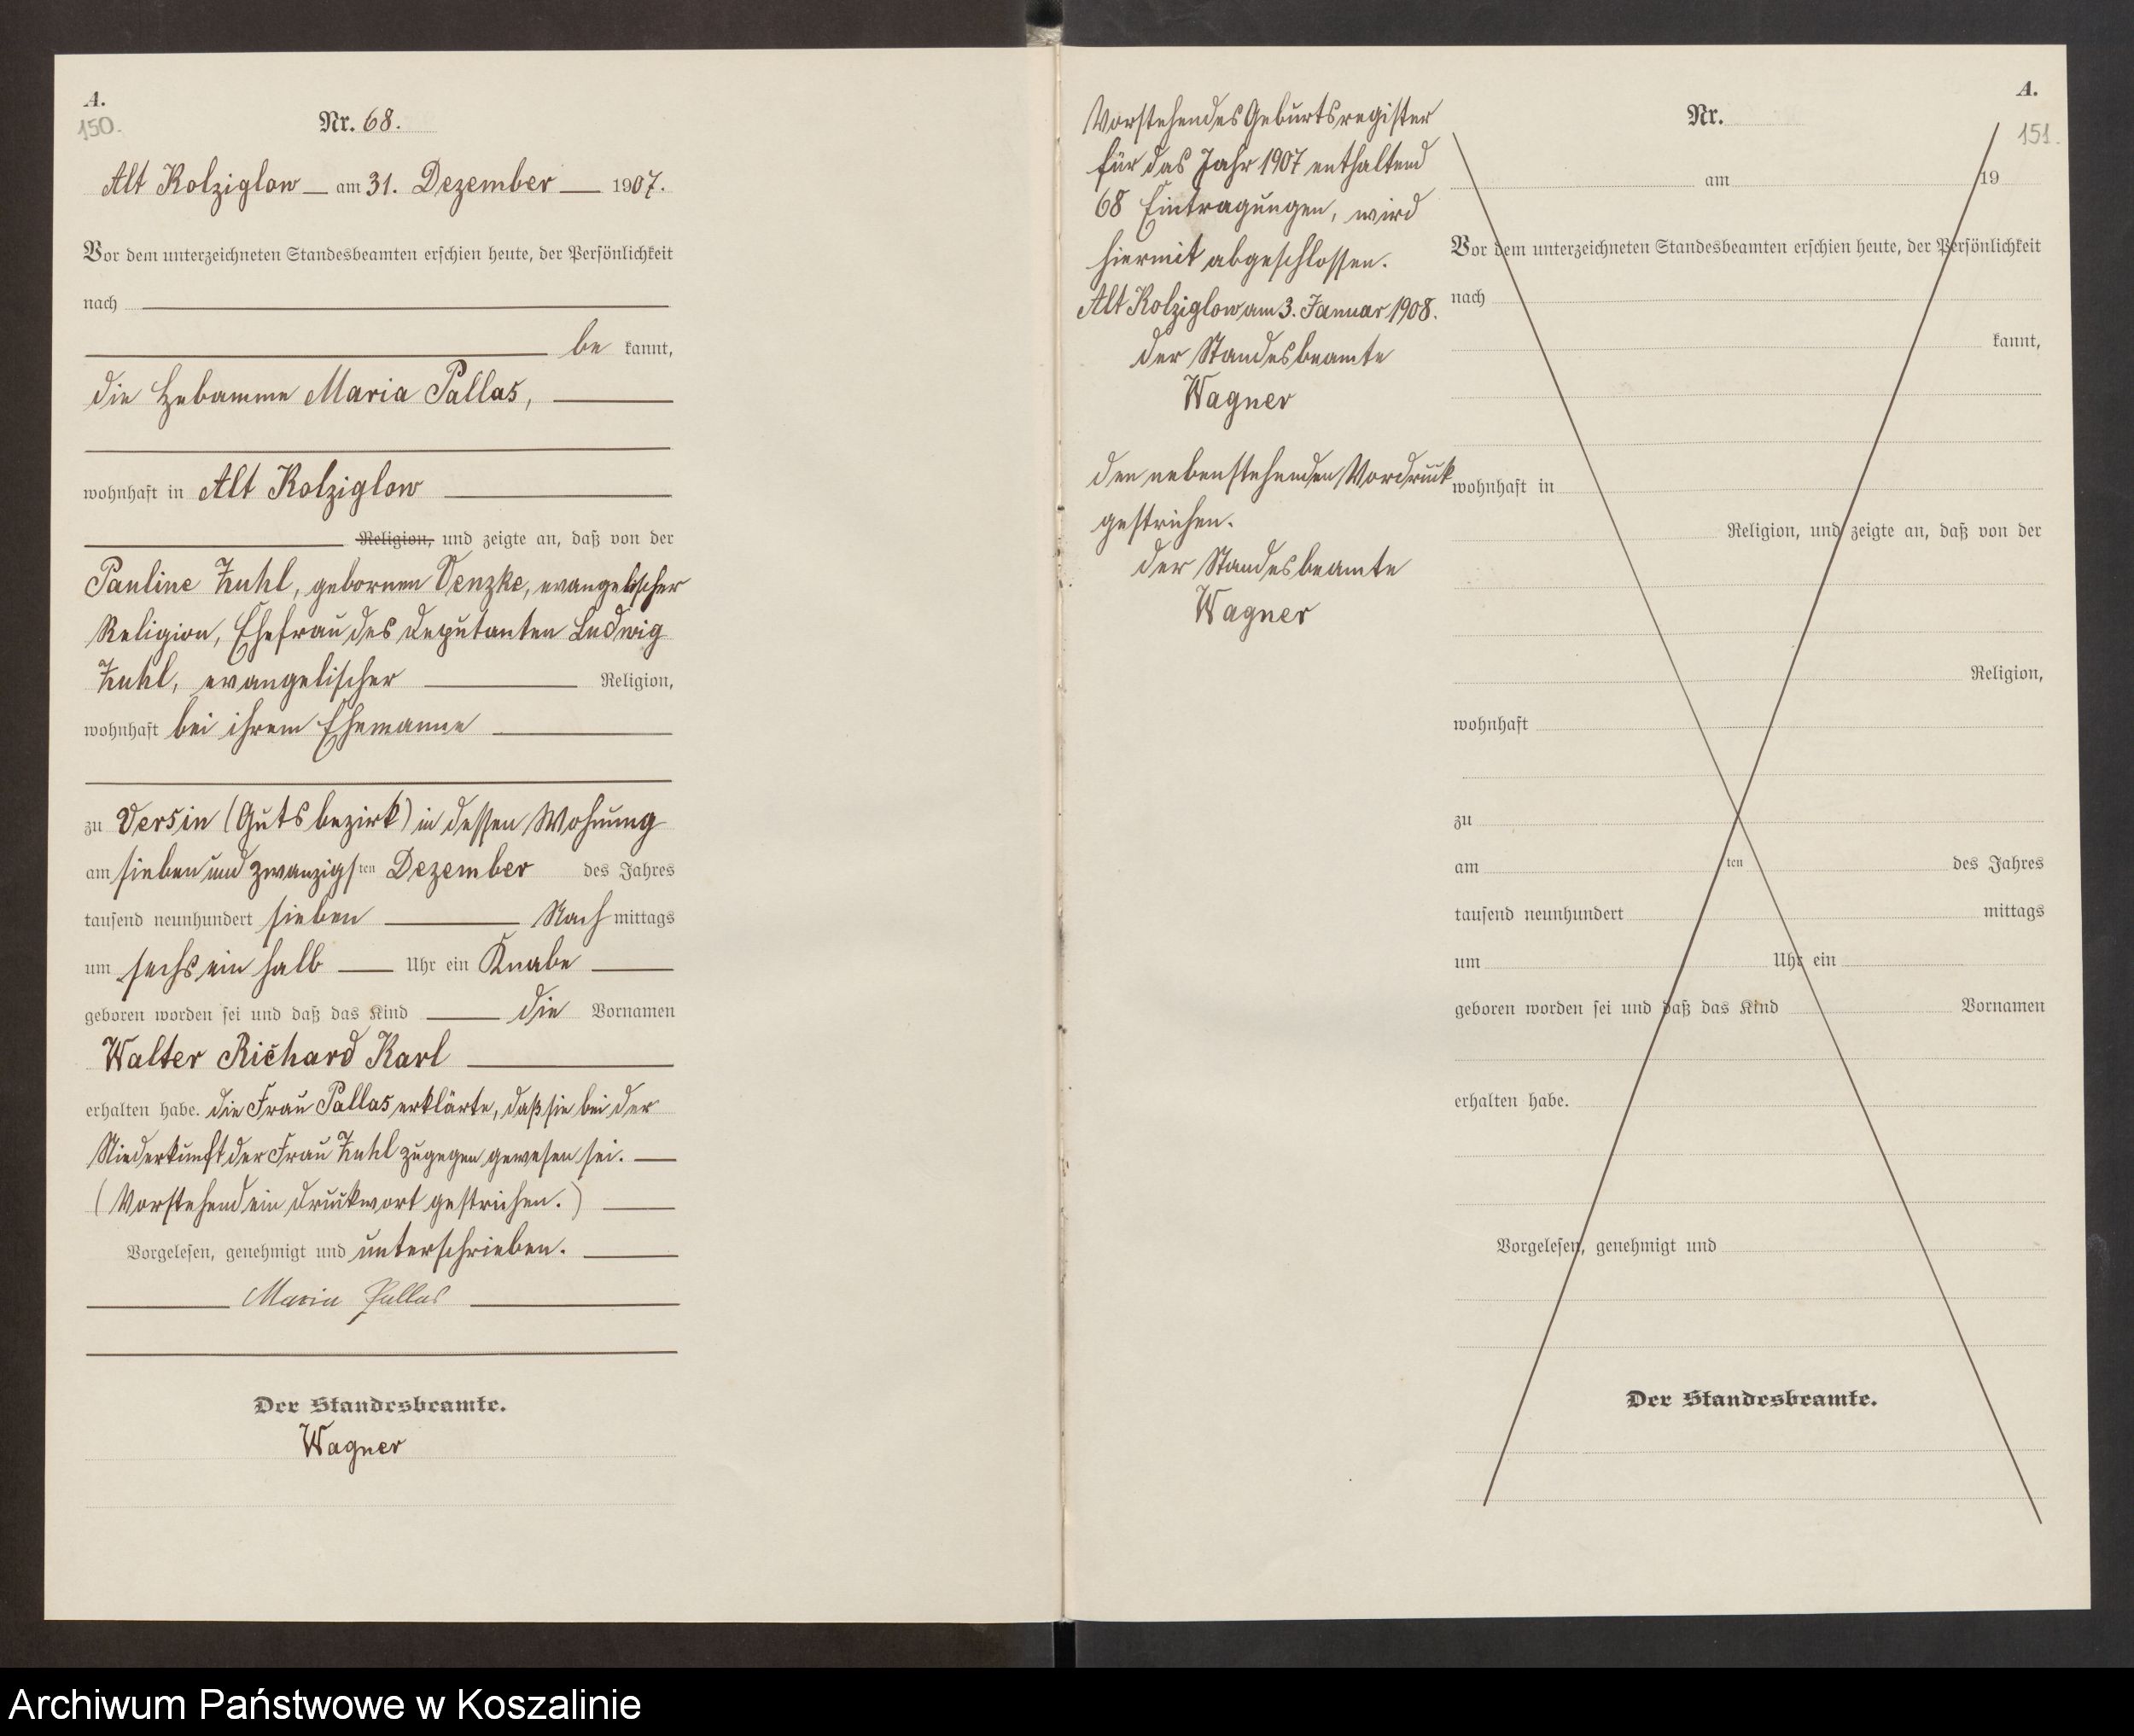 A.
150.
Nr. 68.
Alt Kolziglow am 31. Dezember 1907.
Vor dem unterzeichneten Standesbeamten erschien heute, der Persönlichkeit
nach
be kannt,
die Hebamme Maria Pallas,
wohnhaft in Alt Kolziglow
Religion, und zeigte an, daß von der
Pauline Zuhl, gebornen Venzke, evangelischer
Religion, Ehefrau des Deputanten Ludwig
Zuhl, evangelischer Religion,
wohnhaft bei ihrem Ehemanne
zu Versin (Gutsbezirk) in dessen Wohnung
am sieben und zwanzigsten Dezember des Jahres
tausend neunhundert sieben Nach mittags
um sechs ein halb Uhr ein Knabe
geboren worden sei und daß das Kind die Vornamen
Walter Richard Karl
erhalten habe. Die Frau Pallas erklärte, daß sie bei der
Niederkunft der Frau Zuhl zugegen gewesen sei.
(Vorstehend ein Druckwort gestrichen.)
Vorgelesen, genehmigt und unterschrieben.
Maria Pallas
Der Standesbeamte.
Wagner
Vorstehendes Geburtsregister
für das Jahr 1907 enthaltend
68 Eintragungen, wird
hiermit abgeschlossen.
Alt Kolziglow am 3. Januar 1908.
Der Standesbeamte
Wagner
Den nebenstehenden Vordruck
gestrichen.
Der Standesbeamte
Wagner
A.
151.
Nr.
am 19
Vor dem unterzeichneten Standesbeamten erschien heute, der Persönlichkeit
nach
kannt,
wohnhaft in
Religion, und zeigte an, daß von der
Religion,
wohnhaft
zu
am ten des Jahres
tausend neunhundert mittags
um Uhr ein
geboren worden sei und daß das Kind Vornamen
erhalten habe.
Vorgelesen, genehmigt und
Der Standesbeamte.
Archiwum Państwowe w Koszalinie